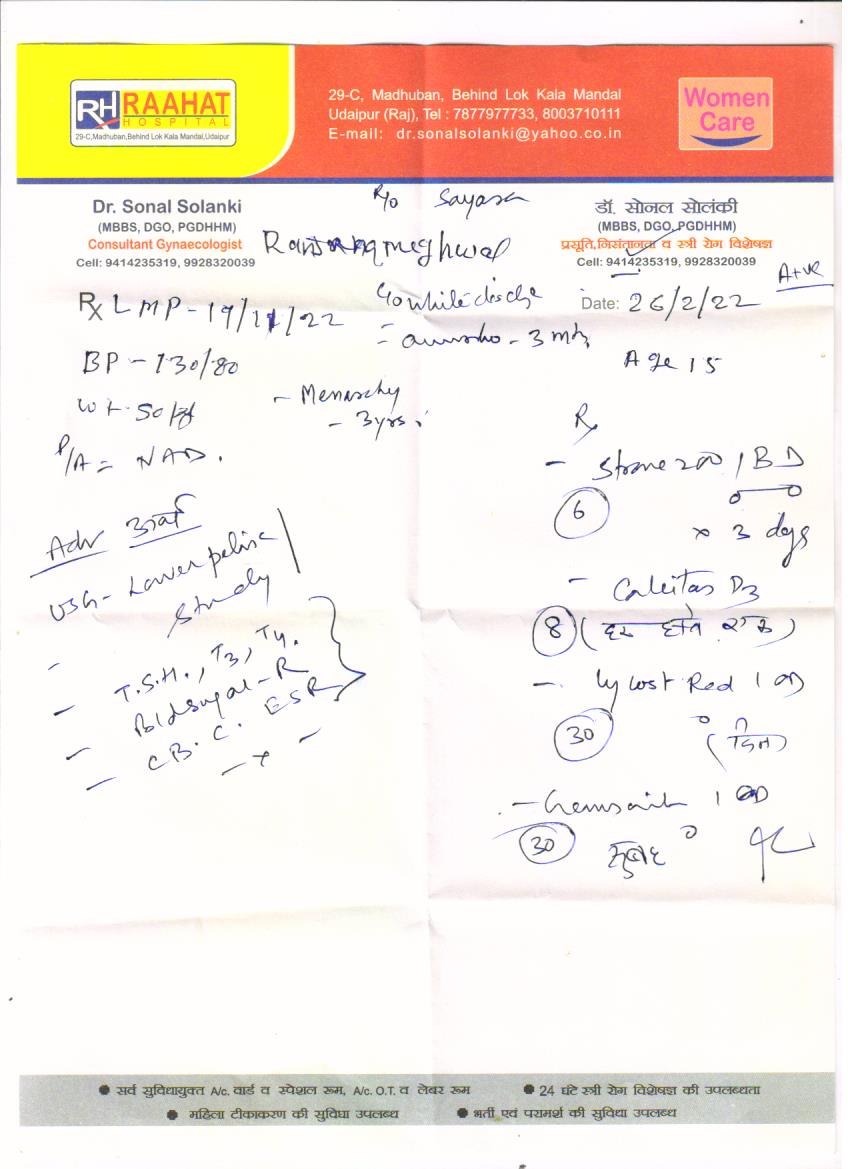 RH RAAHAT
HOSPITAL
29-C,Madhuban,Behind Lok Kala Mandal,Udaipur
29-C, Madhuban, Behind Lok Kala Mandal
Udaipur (Raj), Tel : 7877977733, 8003710111
E-mail: dr.sonalsolanki@yahoo.co.in
Women
Care
Dr. Sonal Solanki
(MBBS, DGO, PGDHHM)
Consultant Gynaecologist
Cell: 9414235319, 9928320039
R/o Sayara
meghwal
डॉ. सोनल सोलंकी
(MBBS, DGO, PGDHHM)
प्रसूति,निसंतानता व स्त्री रोग विशेषज्ञ
Cell: 9414235319, 9928320039
A+ve
Rx LMP - 17/11/22
BP - 130/80
Wt - 50 kg
P/A = NAD.
C/o white discharge
- 3 mths
- Menarchy
- 3 yrs
Date: 26/2/22
Age 15
Adv
USG - Lower pelvic
study
- T.S.H., T3, T4.
- Bld sugar - R
- C.B.C. ESR
Rx
- 200 1 BD
6
x 3 days
- Calcitas D3
8
- Red 1 OD
30
- 1 OD
30 सुबह
सर्व सुविधायुक्त A/c. वार्ड व स्पेशल रूम, A/c. O.T. व लेबर रूम
24 घंटे स्त्री रोग विशेषज्ञ की उपलब्धता
महिला टीकाकरण की सुविधा उपलब्ध
भर्ती एवं परामर्श की सुविधा उपलब्ध